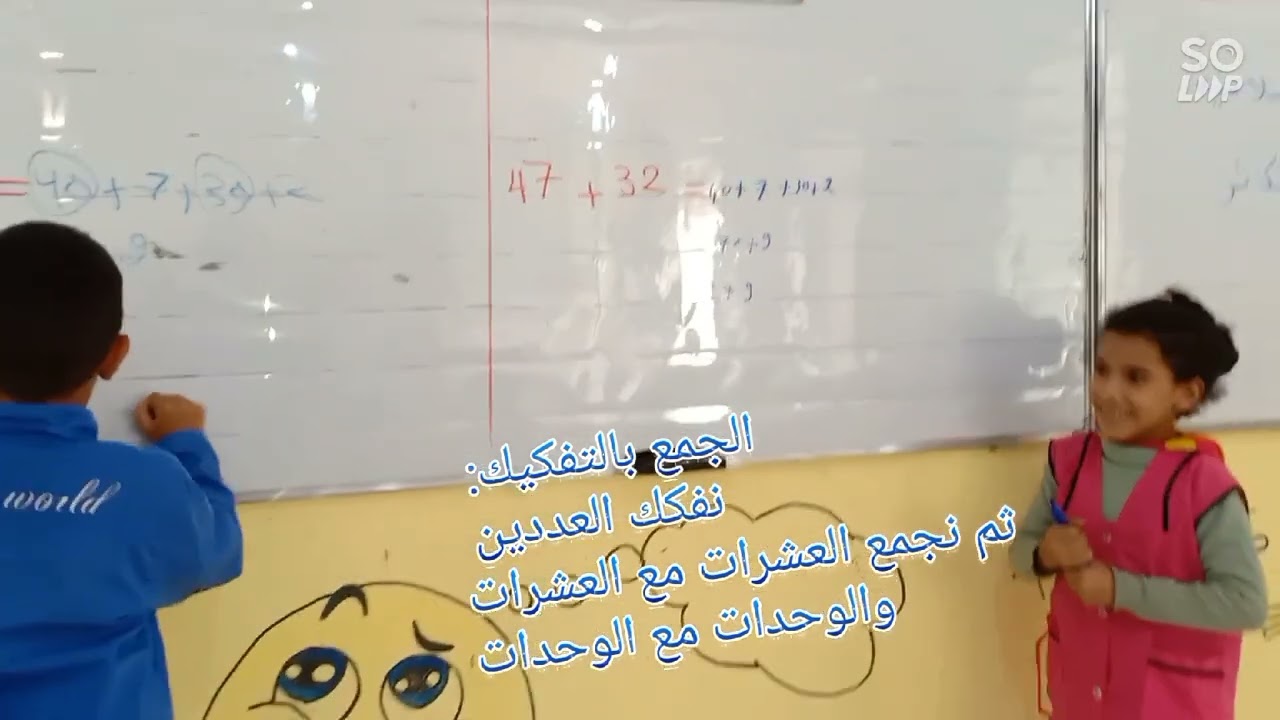 SO
LOOP
= 40 + 7 + 30 + 2
9
47 + 32 = 40 + 7 + 30 + 2
+ 9
+ 9
world
الجمع بالتفكيك:
نفكك العددين
ثم نجمع العشرات مع العشرات
والوحدات مع الوحدات